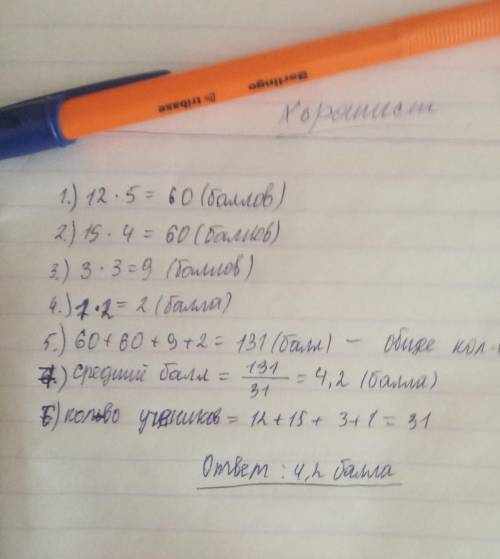 Berlingo
tribase
Хорошист
1.) 12 · 5 = 60 (баллов)
2.) 15 · 4 = 60 (баллов)
3.) 3 · 3 = 9 (баллов)
4.) 1 · 2 = 2 (балла)
5.) 60 + 60 + 9 + 2 = 131 (балл) — общее кол-
7.) средний балл = 131/31 = 4,2 (балла)
6) кол-во учеников = 12 + 15 + 3 + 1 = 31
Ответ: 4,2 балла